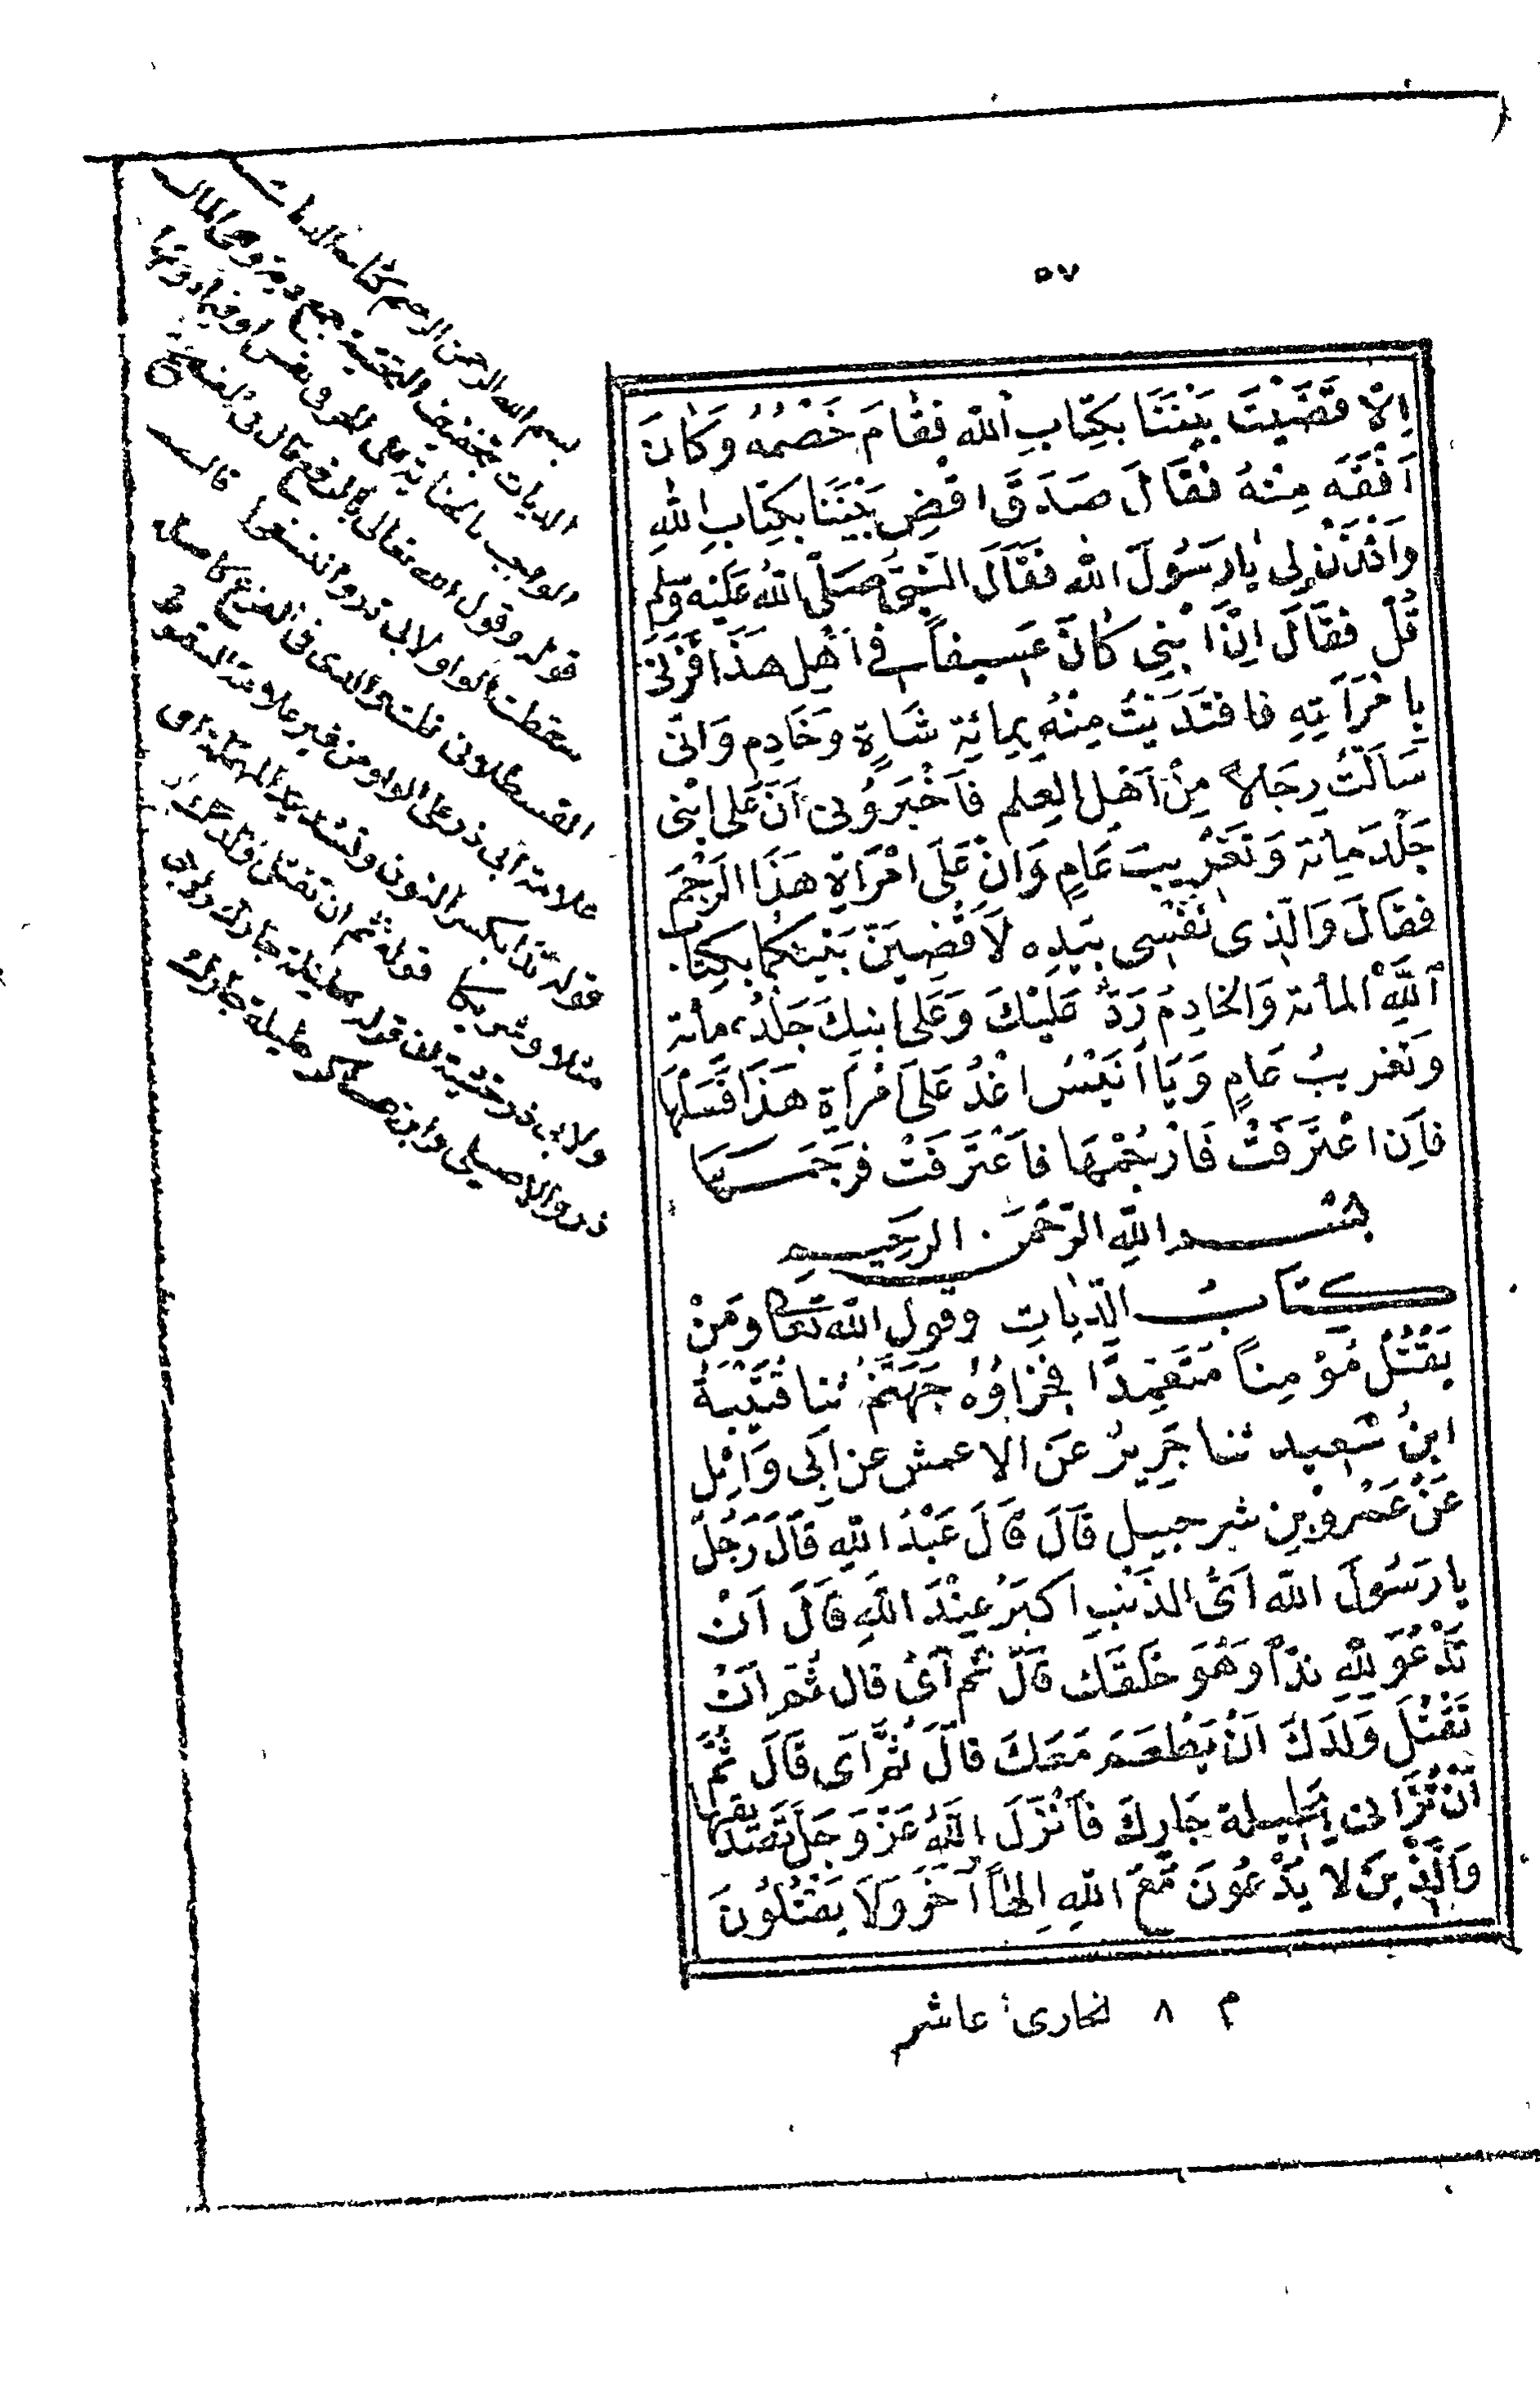 ٥٧
اِلَّا قَضَيْتَ بَيْنَنَا بِكِتَابِ اللّٰه فَقَامَ خَصْمُهُ وَكَانَ
اَفْقَهَ مِنْهُ فَقَالَ صَدَقَ اقْضِ بَيْنَنَا بِكِتَابِ اللهِ
وَأْذَنْ لِي يَارَسُولَ الله فَقَالَ النَّبِيُّ صَلَّى اللهُ عَلَيْهِ وَسَلَّم
قُلْ فَقَالَ اِنَّ ابْنِي كَانَ عَسِيفاً فِي اَهْلِ هَذَا فَزَنَى
بِامْرَأَتِهِ فَافْتَدَيْتُ مِنْهُ بِمِائَةِ شَاةٍ وَخَادِمٍ وَاِنِّي
سَأَلْتُ رِجَالاً مِنْ اَهْلِ الْعِلْمِ فَاَخْبَرُونِي اَنَّ عَلَى ابْنِي
جَلْدَ مِائَة وَتَغْرِيبَ عَامٍ وَاَنَّ عَلَى امْرَأَةِ هَذَا الرَّجْمَ
فَقَالَ وَالَّذِي نَفْسِي بِيَدِهِ لَاَقْضِيَنَّ بَيْنَكُمَا بِكِتَابِ
اللّٰهِ الْمِائَة وَالْخَادِمُ رَدٌّ عَلَيْكَ وَعَلَى ابْنِكَ جَلْدُ مِائَة
وَتَغْرِيبُ عَامٍ وَيَا اُنَيْسُ اغْدُ عَلَى امْرَأَةِ هَذَا فَسَلْهَا
فَاِنِ اعْتَرَفَتْ فَارْجُمْهَا فَاعْتَرَفَتْ فَرَجَمَهَا
بِسْمِ اللهِ الرَّحْمَنِ الرَّحِيمِ
كِتَابُ الدِّيَاتِ وقول الله تَعَالَى وَمَنْ
يَقْتُلْ مُؤْمِناً مُتَعَمِّدًا فَجَزَاؤُهُ جَهَنَّمُ ثنا قُتَيْبَةُ
ابْنُ سَعِيد ثنا جَرِيرٌ عَنِ الاعمش عن اَبِي وَائِل
عَنْ عَمْرِو بْنِ شرحبيل قَالَ قَالَ عَبْدُ اللهِ قَالَ رَجُلٌ
يا رَسُولَ الله اَيُّ الذَّنْبِ اَكْبَرُ عِنْدَ اللهِ قَالَ اَنْ
تَدْعُوَ لِلّٰهِ نِدّاً وَهُوَ خَلَقَكَ قَالَ ثُمَّ اَيُّ قال ثُمَّ اَنْ
تَقْتُلَ وَلَدَكَ اَنْ يَطْعَمَ مَعَكَ قَالَ ثُمَّ اَي قَالَ ثُمَّ
اَنْ تُزَانِي بِحَلِيلَة جَارِكَ فَاَنْزَلَ اللهُ عَزَّ وَجَلَّ تَصْدِيقَهَا
وَالَّذِينَ لا يَدْعُونَ مَعَ اللهِ اِلهاً آخَرَ وَلَا يَقْتُلُونَ
م ٨ بخارى عاشر
بسم الله الرحمن الرحيم كتاب الديات
الديات بتخفيف التحتية جمع دية وهي المال
الواجب بالجناية على الحر في نفس او فيما دونها
قوله وقول الله تعالى بالرفع قال في الفتح
سقطت الواو لابي ذر والنسفي قاله
القسطلاني قلت والذي في الفرع كاصله
علامة ابي ذر على الواو من غير علامة السقوط
قوله ندا بكسر النون وتشديد المهملة اي
مثلا وشريكا قوله ثم ان تقتل ولدك
ولابي ذر خشية ان قوله بحليلة جارك ولابي
ذر والاصيلي وابن عساكر حليلة جارك